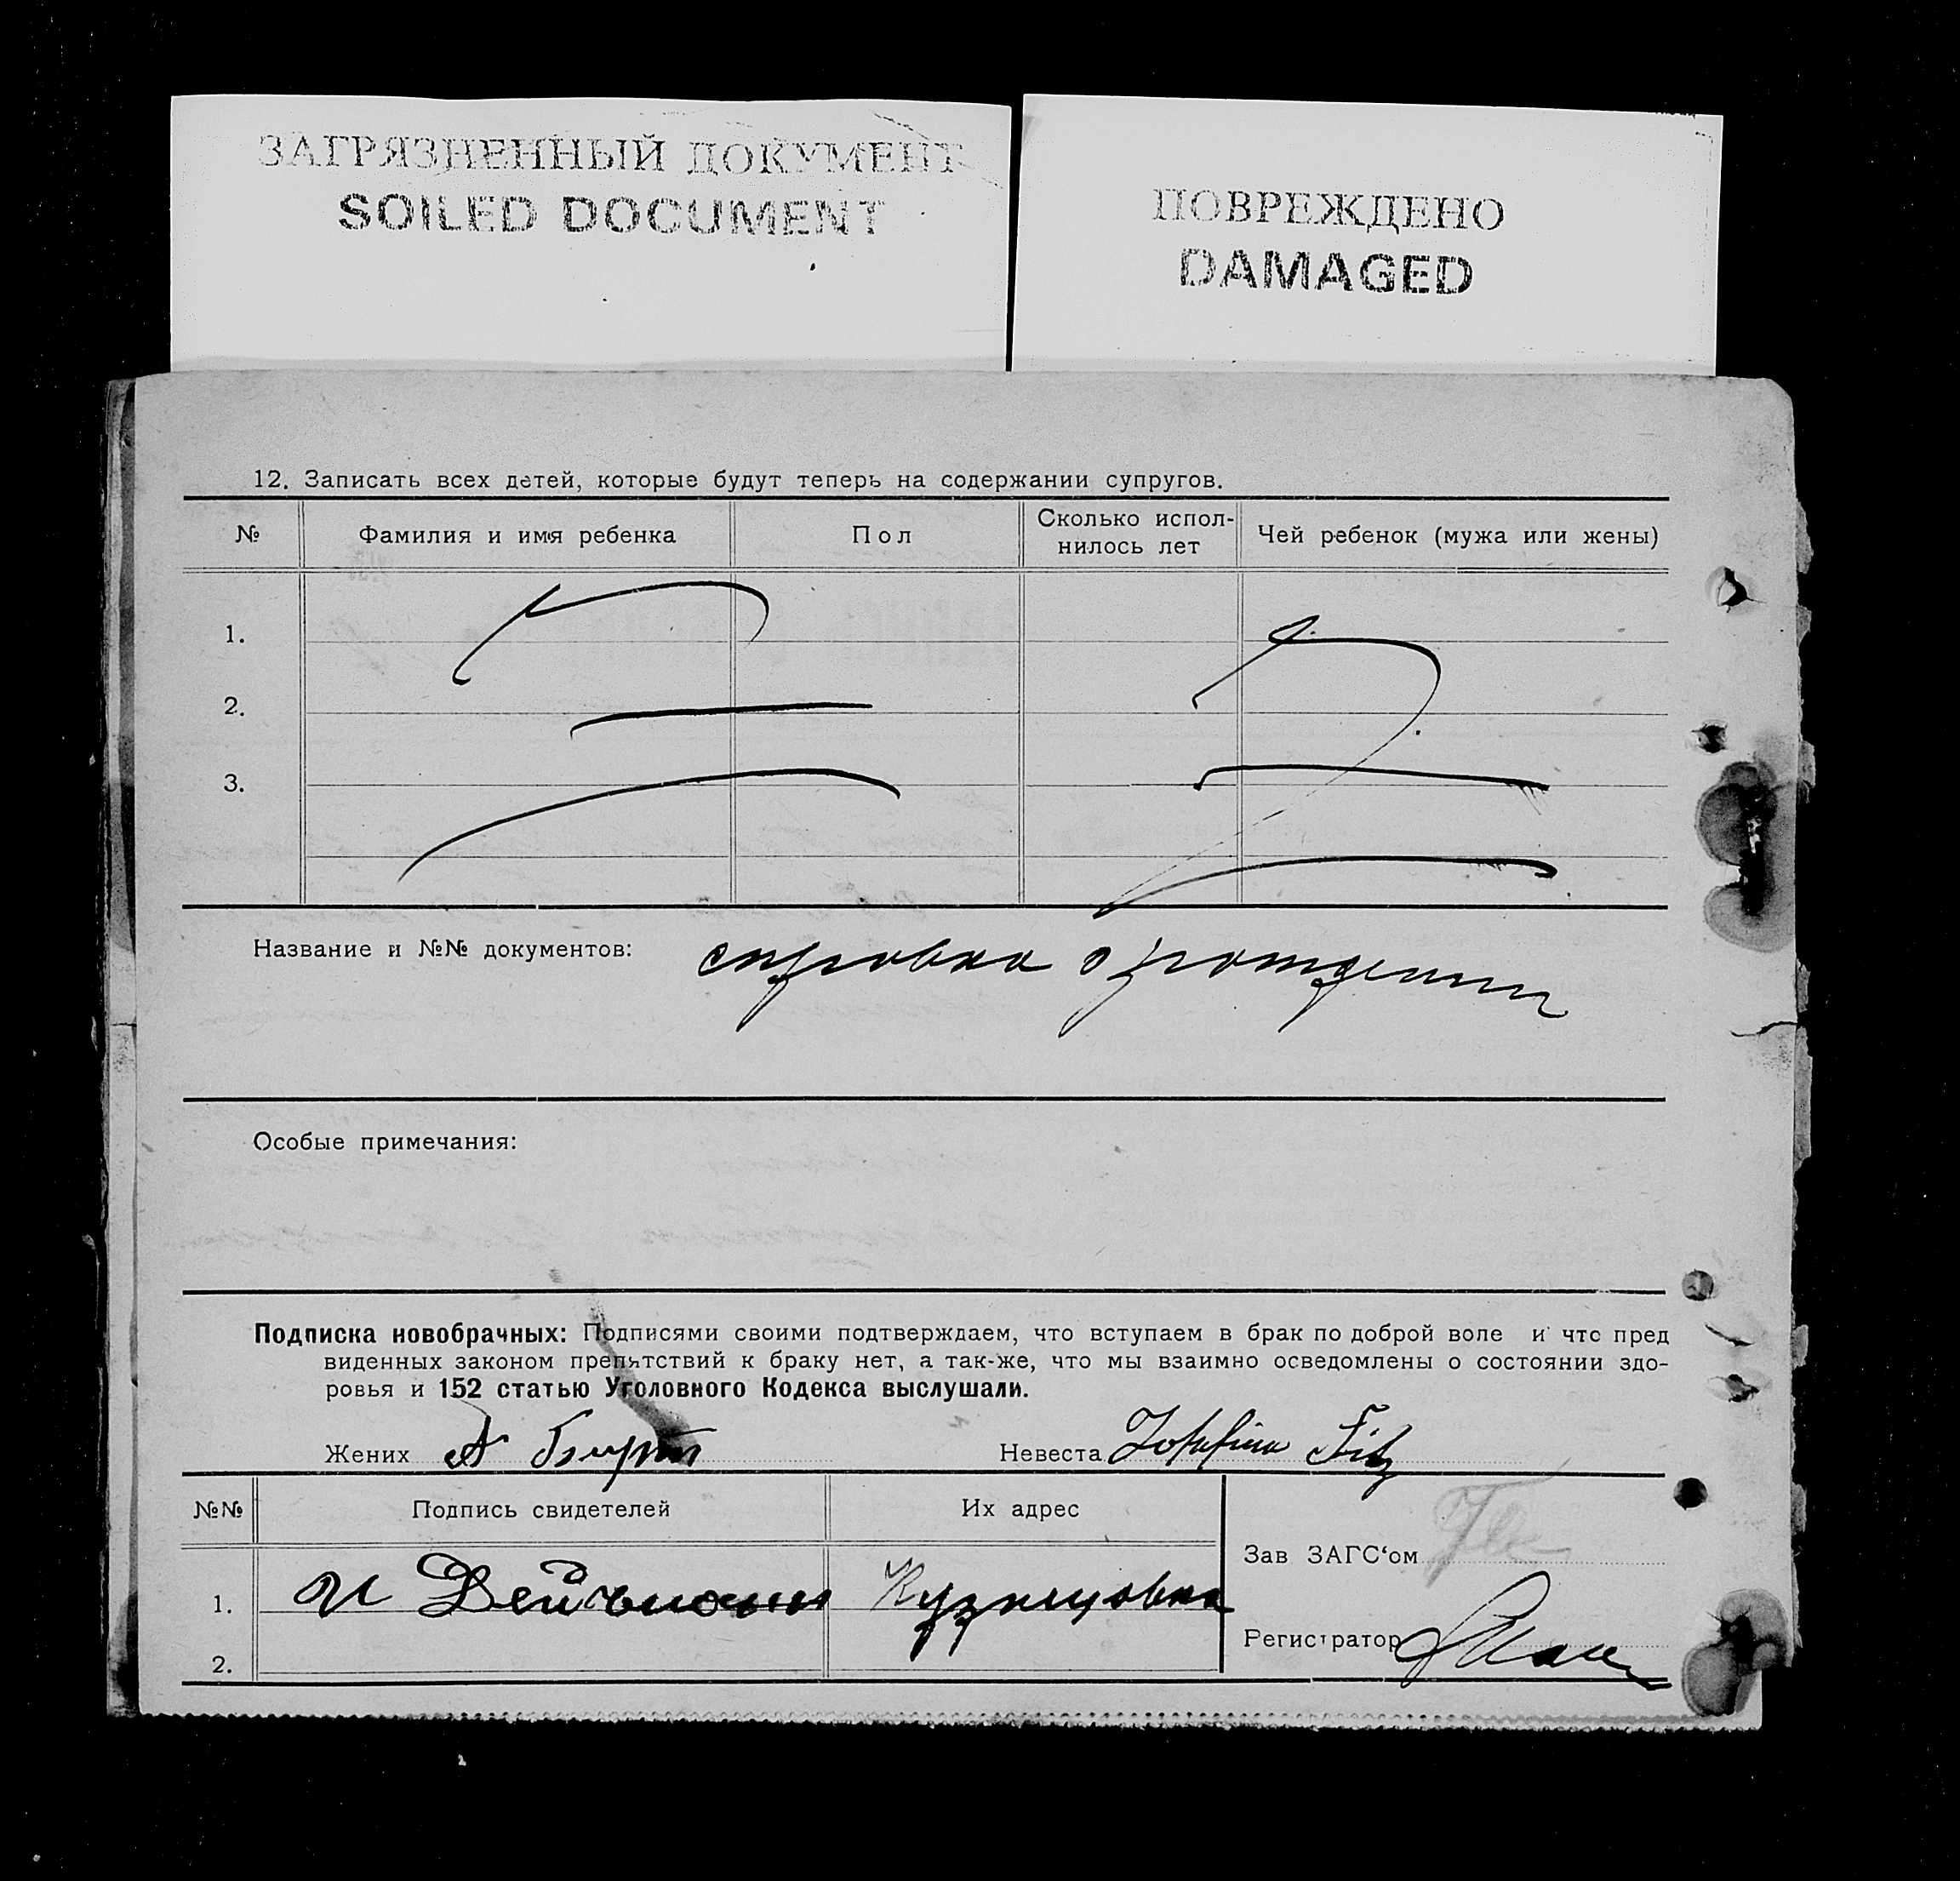 ЗАГРЯЗНЕННЫЙ ДОКУМЕНТ
SOILED DOCUMENT
ПОВРЕЖДЕНО
DAMAGED
12. Записать всех детей, которые будут теперь на содержании супругов.
№ Фамилия и имя ребенка Пол Сколько испол-нилось лет Чей ребенок (мужа или жены)
1.
2.
3.
Название и №№ документов: справка о рождении
Особые примечания:
Подписка новобрачных: Подписями своими подтверждаем, что вступаем в брак по доброй воле и что пред
виденных законом препятствий к браку нет, а так-же, что мы взаимно осведомлены о состоянии здо-
ровья и 152 статью Уголовного Кодекса выслушали.
Жених А Невеста Fitz
№№ Подпись свидетелей Их адрес
Зав ЗАГС'ом
1. Кузнецовка
Регистратор
2.